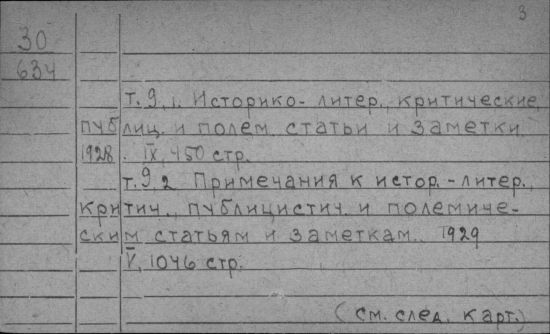 3
30
634
т. 9, 1. Историко-литер., критические,
публиц. и полем. статьи и заметки.
1928. IX, 450 стр.
т. 9, 2 Примечания к истор.-литер.,
критич., публицистич. и полемиче-
ским статьям и заметкам. 1929
V, 1046 стр.
(см. след. карт.)